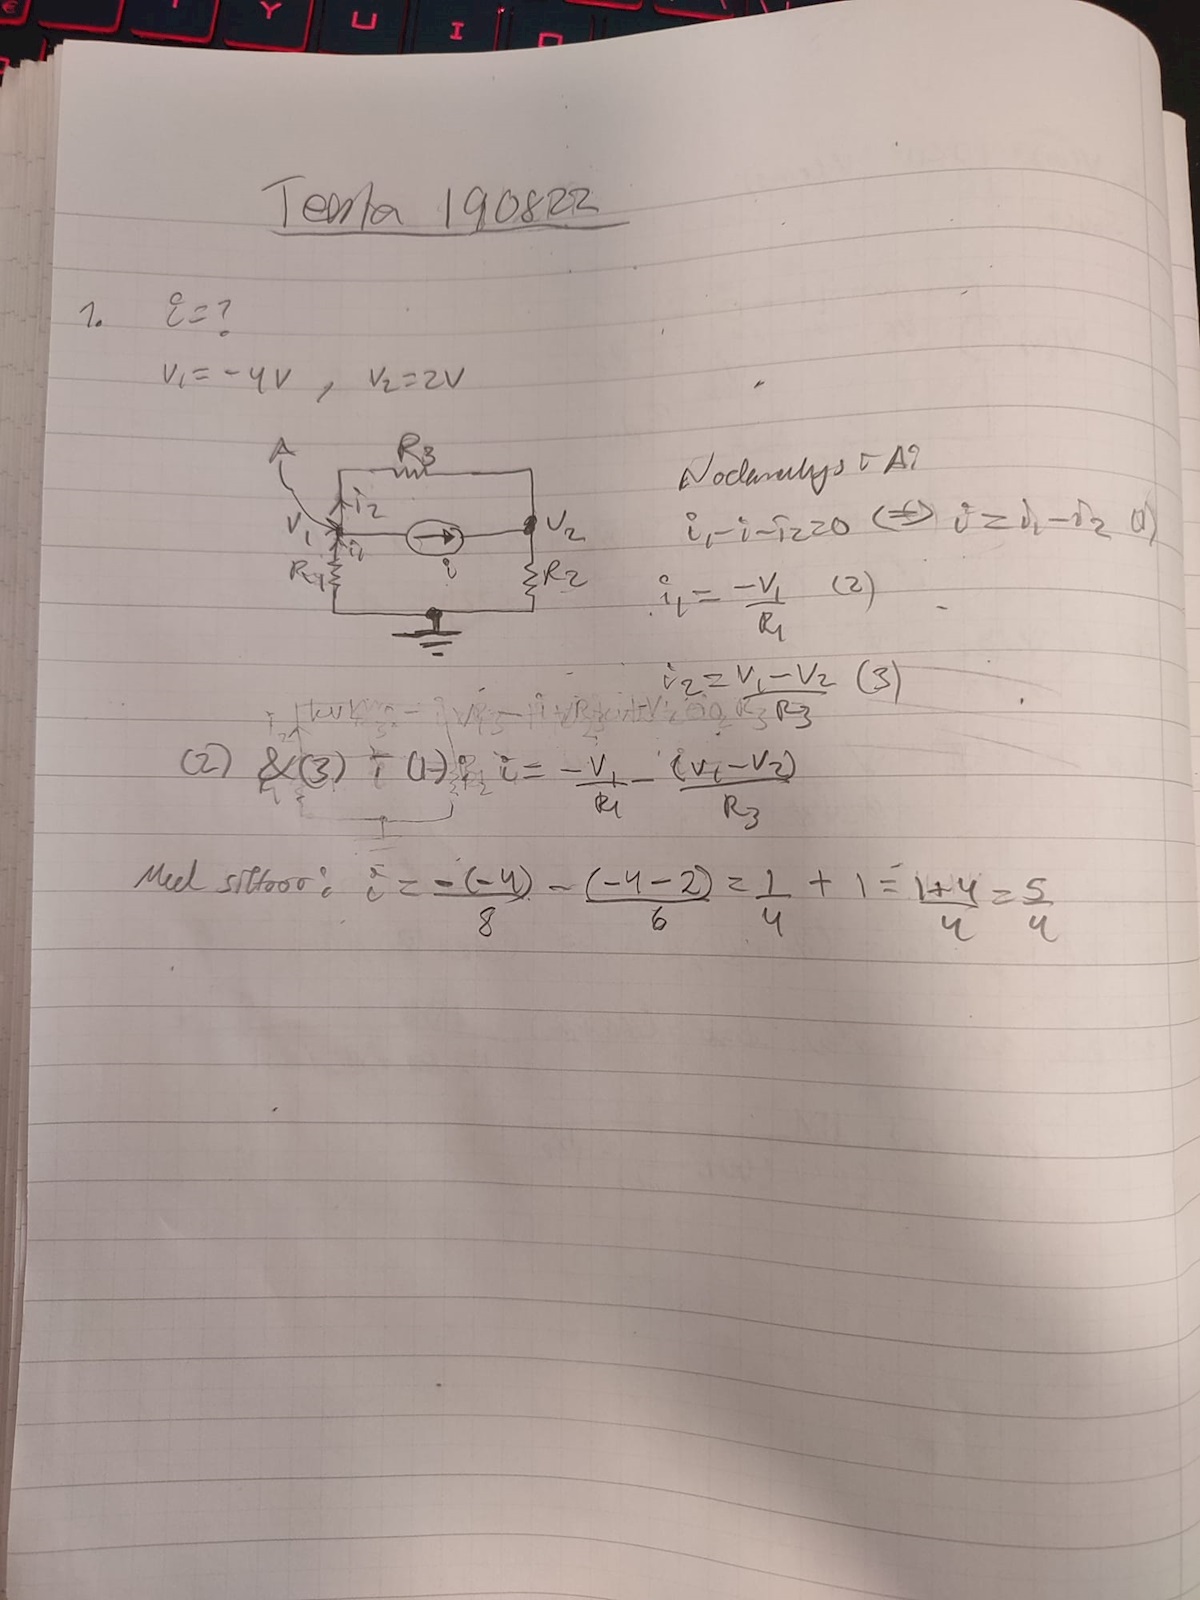 Tenta 190822
1. i=?
V₁ = -4V, V₂ = 2V
A
R₃
i₂
V₁
V₂
i₁
i
R₁
R₂
Nodanalys i A:
i₁-i-i₂=0 (⇔) i = i₁-i₂ (1)
i₁ = -V₁/R₁ (2)
i₂ = V₁-V₂/R₃ (3)
(2) & (3) i (1): i = -V₁/R₁ - (V₁-V₂)/R₃
Med siffror: i = -(-4)/8 - (-4-2)/6 = 1/4 + 1 = 1+4/4 = 5/4